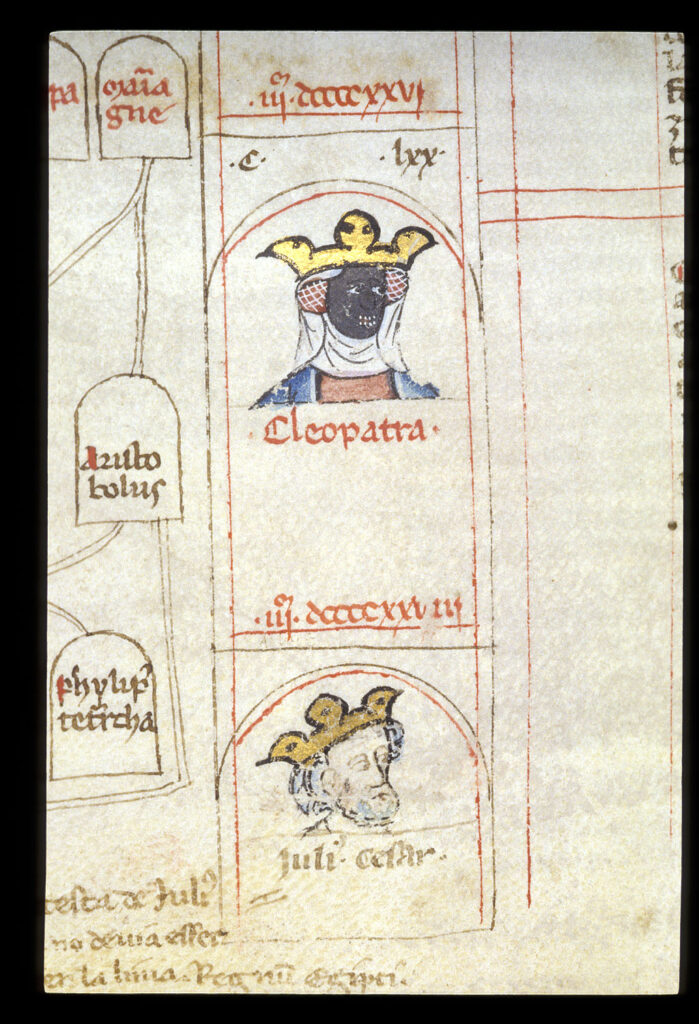 pa
gne
·iiij· dccccxxvj
·C· ·lxx·
·Cleopatra·
Aristo
bolus
·iiij· dccccxxviii
phylip᾿
tet᾿rcha
Juli᾿· Cesar·
testa de Juli᾿
no deuia esser
en la linia. Regnū Egipti.